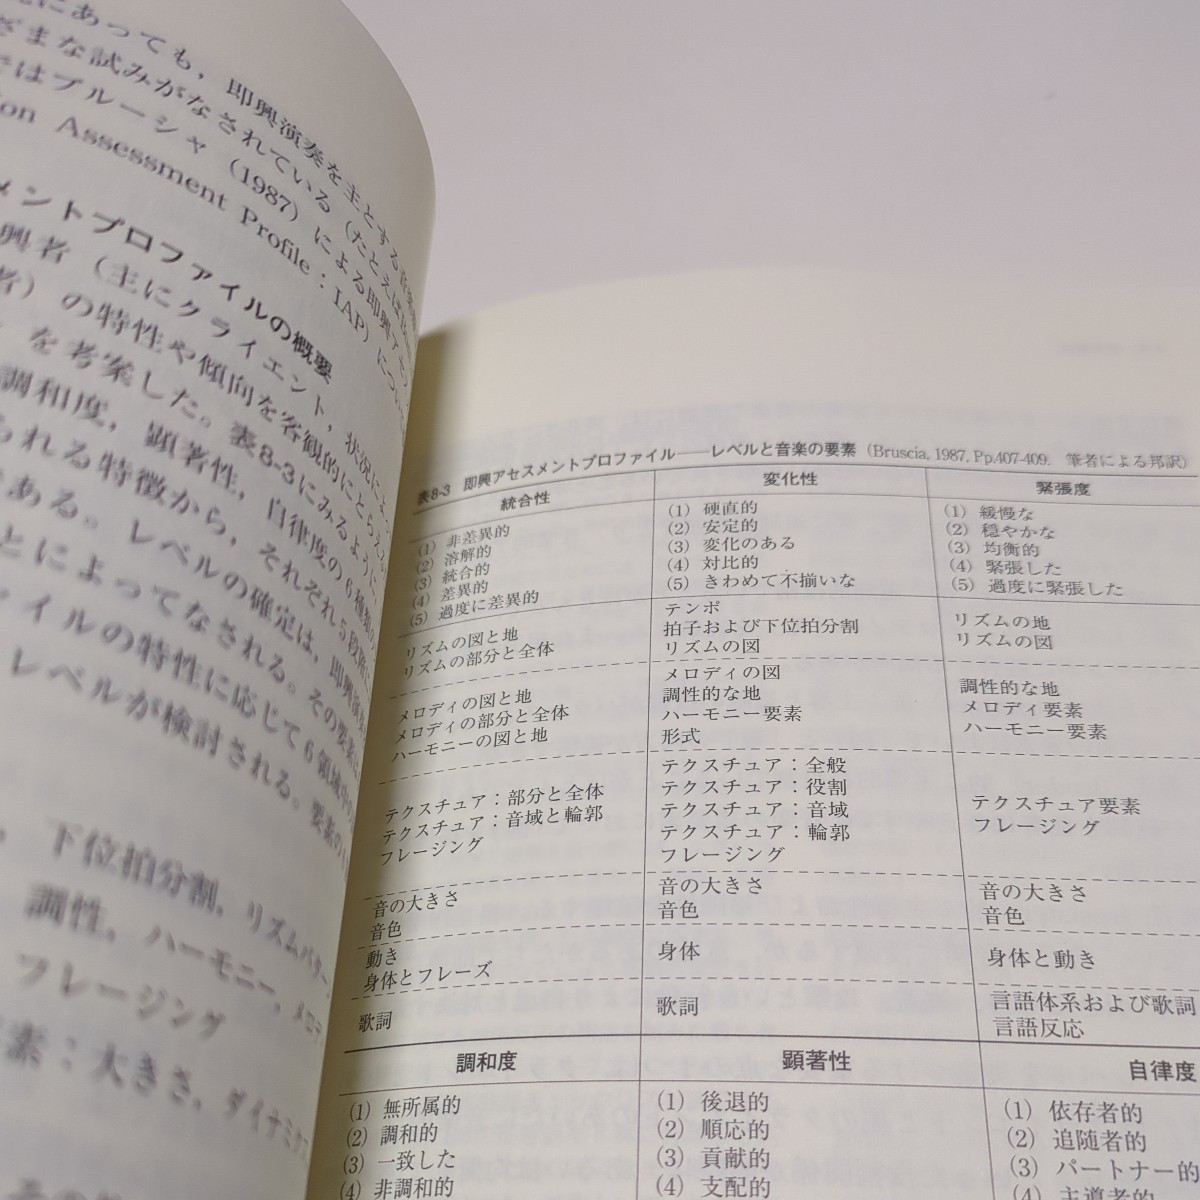 にあっても，即興演奏を主とする音楽
ざまな試みがなされている（たとえば
ではブルーシャ（1987）による即興アセス
ion Assessment Profile：IAP）につい
メントプロファイルの概要
興者（主にクライエント，状況によっ
者）の特性や傾向を客観的にとらえる
を考案した。表8-3にみるように，
調和度，顕著性，自律度の6種類の
られる特徴から，それぞれ5段階に
である。レベルの確定は，即興演奏
とによってなされる。その要素は，
ァイルの特性に応じて6領域中の
レベルが検討される。要素の
，下位拍分割，リズムパター
調性，ハーモニー，メロデ
フレージング
素：大きさ，ダイナミクス
表8-3　即興アセスメントプロファイル――レベルと音楽の要素（Bruscia, 1987, Pp.407-409.　筆者による邦訳）
統合性
(1) 非差異的
(2) 溶解的
(3) 統合的
(4) 差異的
(5) 過度に差異的
リズムの図と地
リズムの部分と全体
メロディの図と地
メロディの部分と全体
ハーモニーの図と地
テクスチュア：部分と全体
テクスチュア：音域と輪郭
フレージング
音の大きさ
音色
動き
身体とフレーズ
歌詞
変化性
(1) 硬直的
(2) 安定的
(3) 変化のある
(4) 対比的
(5) きわめて不揃いな
テンポ
拍子および下位拍分割
リズムの図
メロディの図
調性的な地
ハーモニー要素
形式
テクスチュア：全般
テクスチュア：役割
テクスチュア：音域
テクスチュア：輪郭
フレージング
音の大きさ
音色
身体
歌詞
緊張度
(1) 緩慢な
(2) 穏やかな
(3) 均衡的
(4) 緊張した
(5) 過度に緊張した
リズムの地
リズムの図
調性的な地
メロディ要素
ハーモニー要素
テクスチュア要素
フレージング
音の大きさ
音色
身体と動き
言語体系および歌詞
言語反応
調和度
(1) 無所属的
(2) 調和的
(3) 一致した
(4) 非調和的
顕著性
(1) 後退的
(2) 順応的
(3) 貢献的
(4) 支配的
自律度
(1) 依存者的
(2) 追随者的
(3) パートナー的
(4) 主導者的